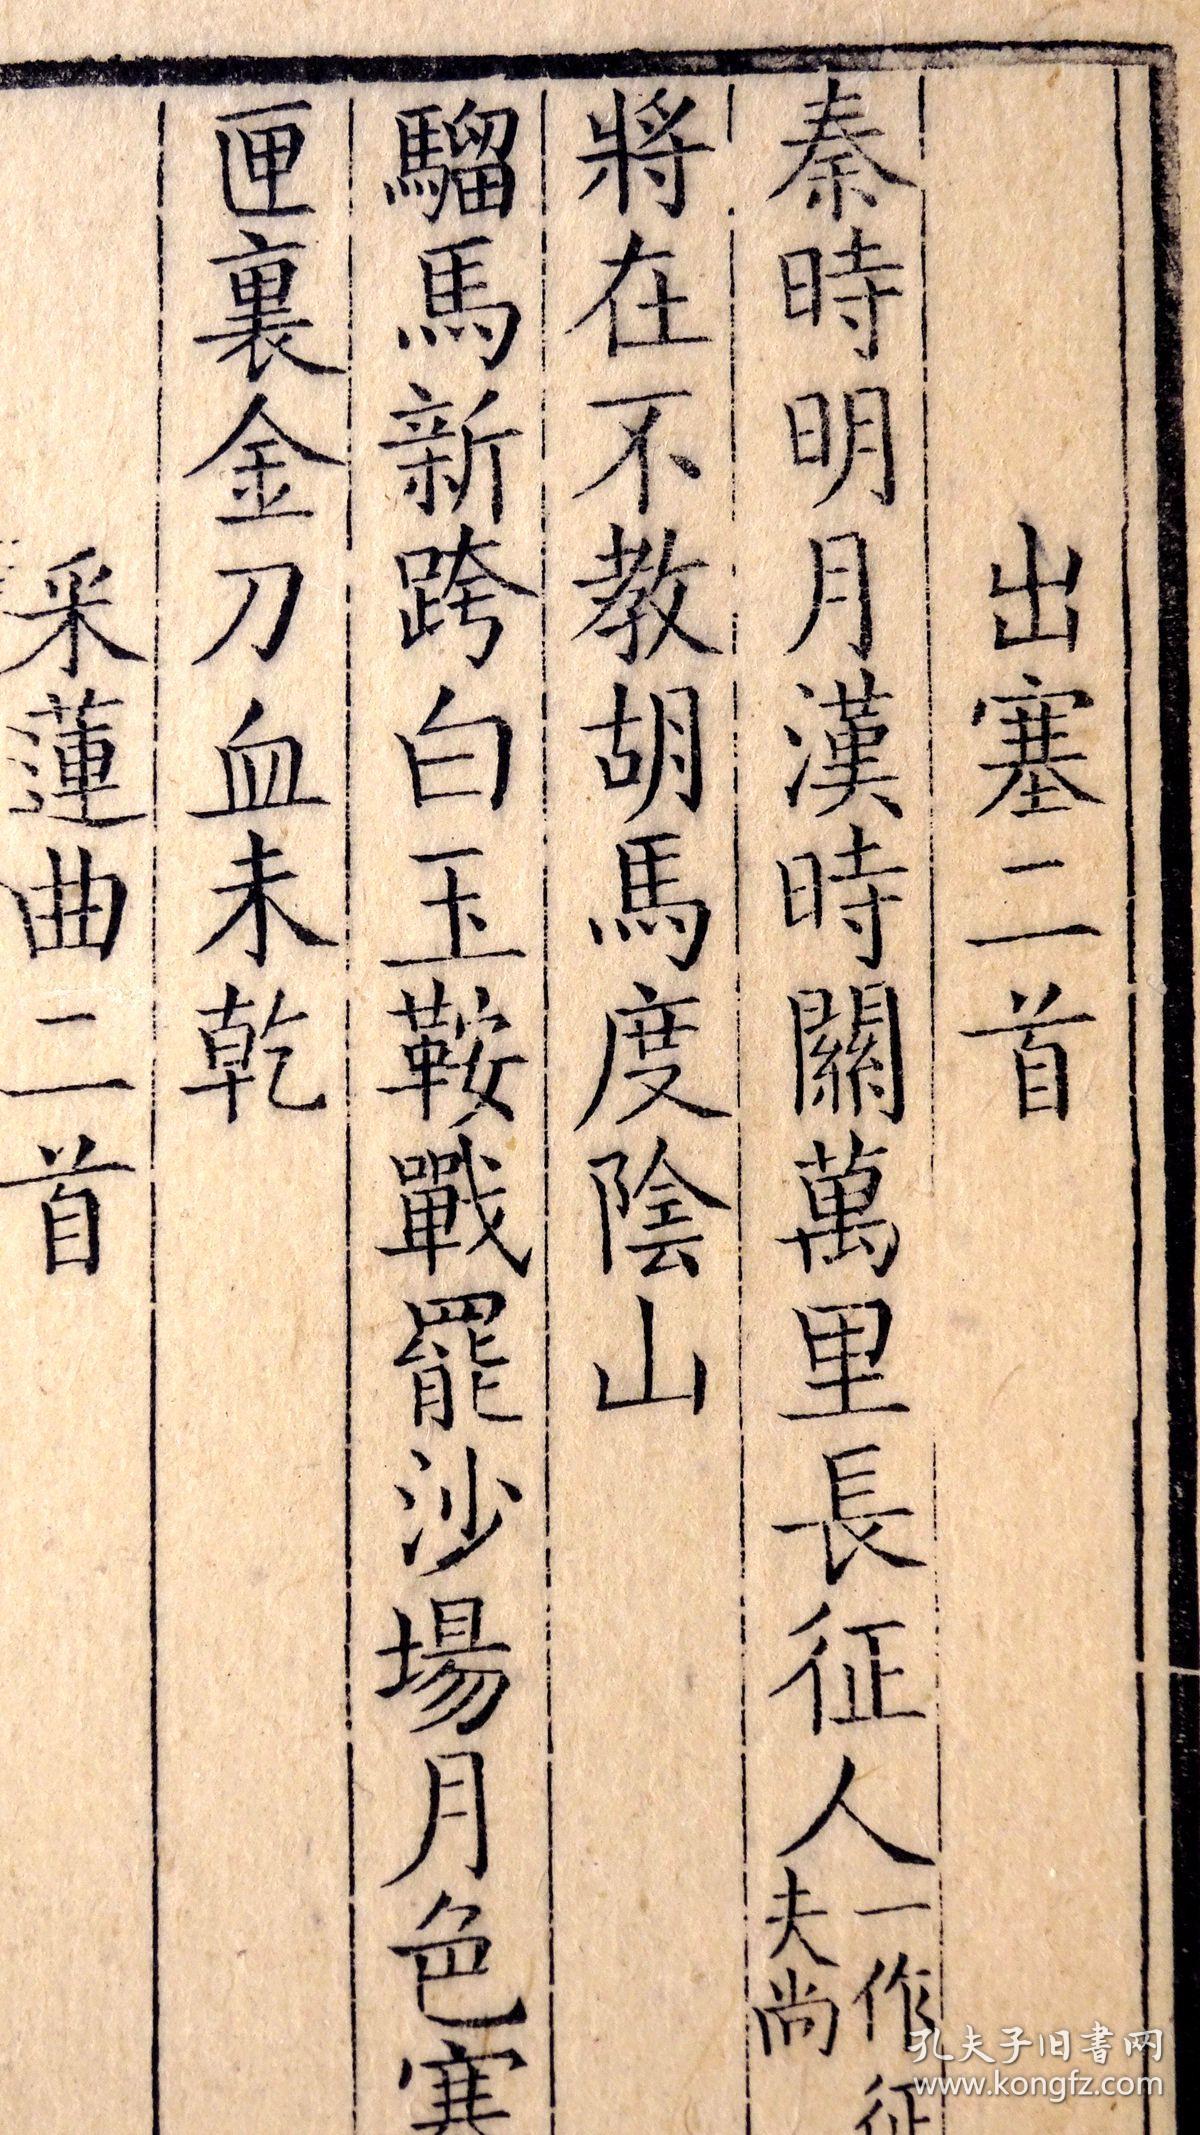 出塞二首
秦時明月漢時關萬里長征人一作征
夫尚
將在不教胡馬度陰山
騮馬新跨白玉鞍戰罷沙場月色寒
匣裏金刀血未乾
采蓮曲二首
孔夫子旧书网
www.kongfz.com